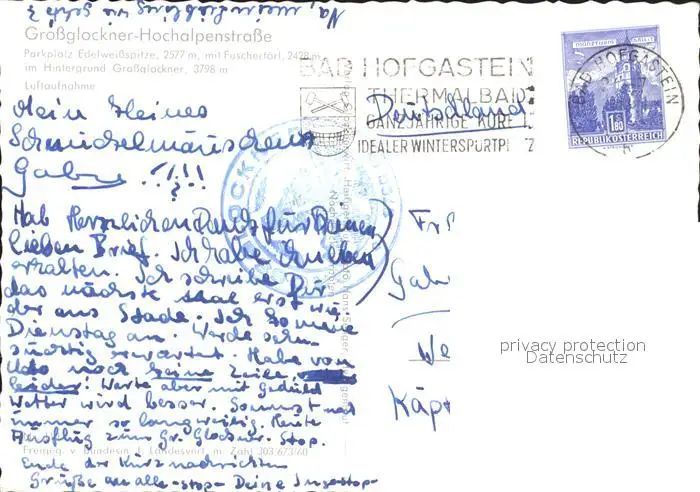 Na, mein Liebling wie geht's?
Großglockner-Hochalpenstraße
Parkplatz Edelweißspitze, 2577 m, mit Fuschertörl, 2428 m
im Hintergrund Großglockner, 3798 m
Luftaufnahme
BAD HOFGASTEIN
THERMALBAD
GANZJÄHRIGE KURE
IDEALER WINTERSPORTPL TZ
BAD HOFGASTEIN
1.80
REPUBLIK ÖSTERREICH
Deutschland
Mein kleines
Gaby !!!
Hab herzlichen Dank für Deinen
lieben Brief. Ich habe ihn eben
erhalten. Ich schreibe Dir
das nächste Mal erst wie-
der aus Stade. Ich komme
Dienstag an. Werde sehn-
süchtig erwartet. Habe von
Udo noch keine Zeile
leider! Warte aber mit Geduld
Wetter wird besser. Sonnst
immer so langweilig. Heute
Ausflug zum Gr. Glockner. Stop.
Freigeg. v. Bundesm. f. Landesvert. m. Zahl 303/673/60
Ende der Kurznachrichten
Grüße an alle-stop- Deine -stop-
Gab
We
Käpt
privacy protection
Datenschutz